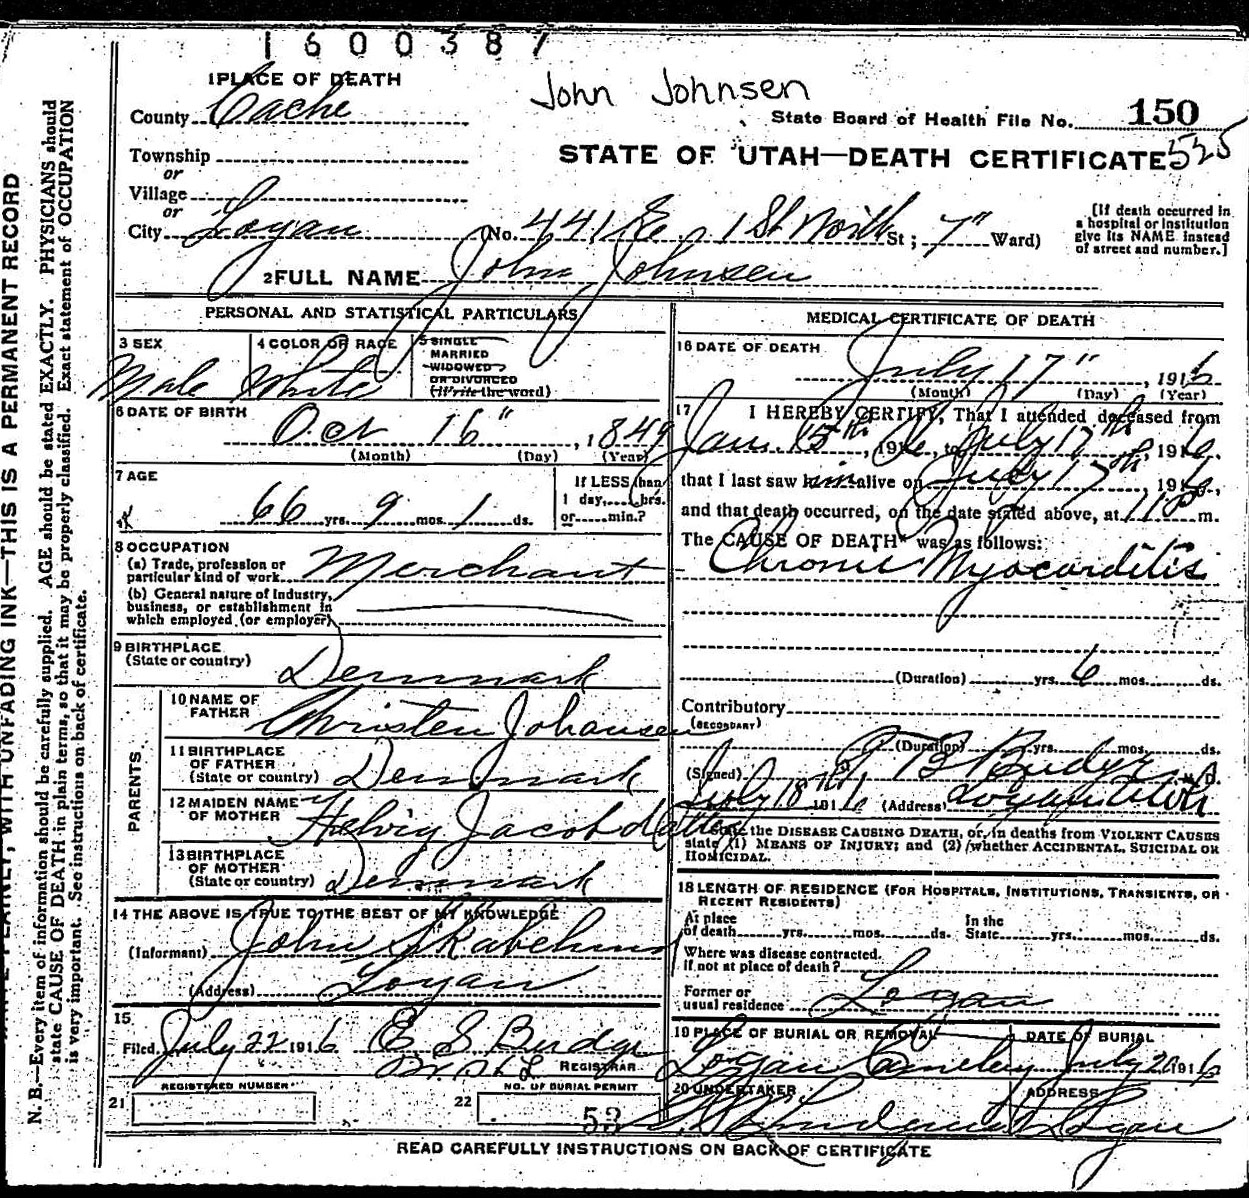 1600387
John Johnsen
1 PLACE OF DEATH
County Cache
State Board of Health File No. 150
STATE OF UTAH—DEATH CERTIFICATE 525
Township
or
Village
or
City Logan (No. 441 E. 1 St North St; 7" Ward)
[If death occurred in
a hospital or institution
give its NAME instead
of street and number.]
2 FULL NAME John Johnsen
PERSONAL AND STATISTICAL PARTICULARS
3 SEX Male
4 COLOR OR RACE White
5 SINGLE
MARRIED
WIDOWED
OR DIVORCED
(Write the word)
6 DATE OF BIRTH
Oct 16", 1849
(Month) (Day) (Year)
7 AGE
66 yrs. 9 mos. 1 ds.
If LESS than
1 day, hrs.
or min.?
8 OCCUPATION
(a) Trade, profession or
particular kind of work Merchant
(b) General nature of industry,
business, or establishment in
which employed (or employer)
9 BIRTHPLACE
(State or country) Denmark
PARENTS
10 NAME OF
FATHER Christen Johansen
11 BIRTHPLACE
OF FATHER
(State or country) Denmark
12 MAIDEN NAME
OF MOTHER Helvig Jacobdatter
13 BIRTHPLACE
OF MOTHER
(State or country) Denmark
14 THE ABOVE IS TRUE TO THE BEST OF MY KNOWLEDGE
(Informant) John Skabelund
(Address) Logan
15
Filed July 22 1916 E S Budge
REGISTRAR
REGISTERED NUMBER
21
NO. OF BURIAL PERMIT
22 53
MEDICAL CERTIFICATE OF DEATH
16 DATE OF DEATH
July 17", 1916
(Month) (Day) (Year)
17 I HEREBY CERTIFY, That I attended deceased from
Jan. 15th, 1916, to July 17th, 1916,
that I last saw him alive on July 17th, 1916,
and that death occurred, on the date stated above, at 11 P m.
The CAUSE OF DEATH* was as follows:
Chronic Myocarditis
(Duration) yrs. 6 mos. ds.
Contributory
(SECONDARY)
(Duration) yrs. mos. ds.
(Signed) T B Budge M.D.
July 18th 1916 (Address) Logan Utah
*State the DISEASE CAUSING DEATH, or, in deaths from VIOLENT CAUSES
state (1) MEANS OF INJURY; and (2) whether ACCIDENTAL, SUICIDAL OR
HOMICIDAL.
18 LENGTH OF RESIDENCE (FOR HOSPITALS, INSTITUTIONS, TRANSIENTS, OR
RECENT RESIDENTS)
At place
of death yrs. mos. ds.
In the
State yrs. mos. ds.
Where was disease contracted.
If not at place of death?
Former or
usual residence Logan
19 PLACE OF BURIAL OR REMOVAL
Logan Cemetery
DATE OF BURIAL
July 20 1916
20 UNDERTAKER
ADDRESS
Logan
READ CAREFULLY INSTRUCTIONS ON BACK OF CERTIFICATE
WRITE PLAINLY, WITH UNFADING INK—THIS IS A PERMANENT RECORD
N. B.—Every item of information should be carefully supplied. AGE should be stated EXACTLY. PHYSICIANS should
state CAUSE OF DEATH in plain terms, so that it may be properly classified. Exact statement of OCCUPATION
is very important. See instructions on back of certificate.